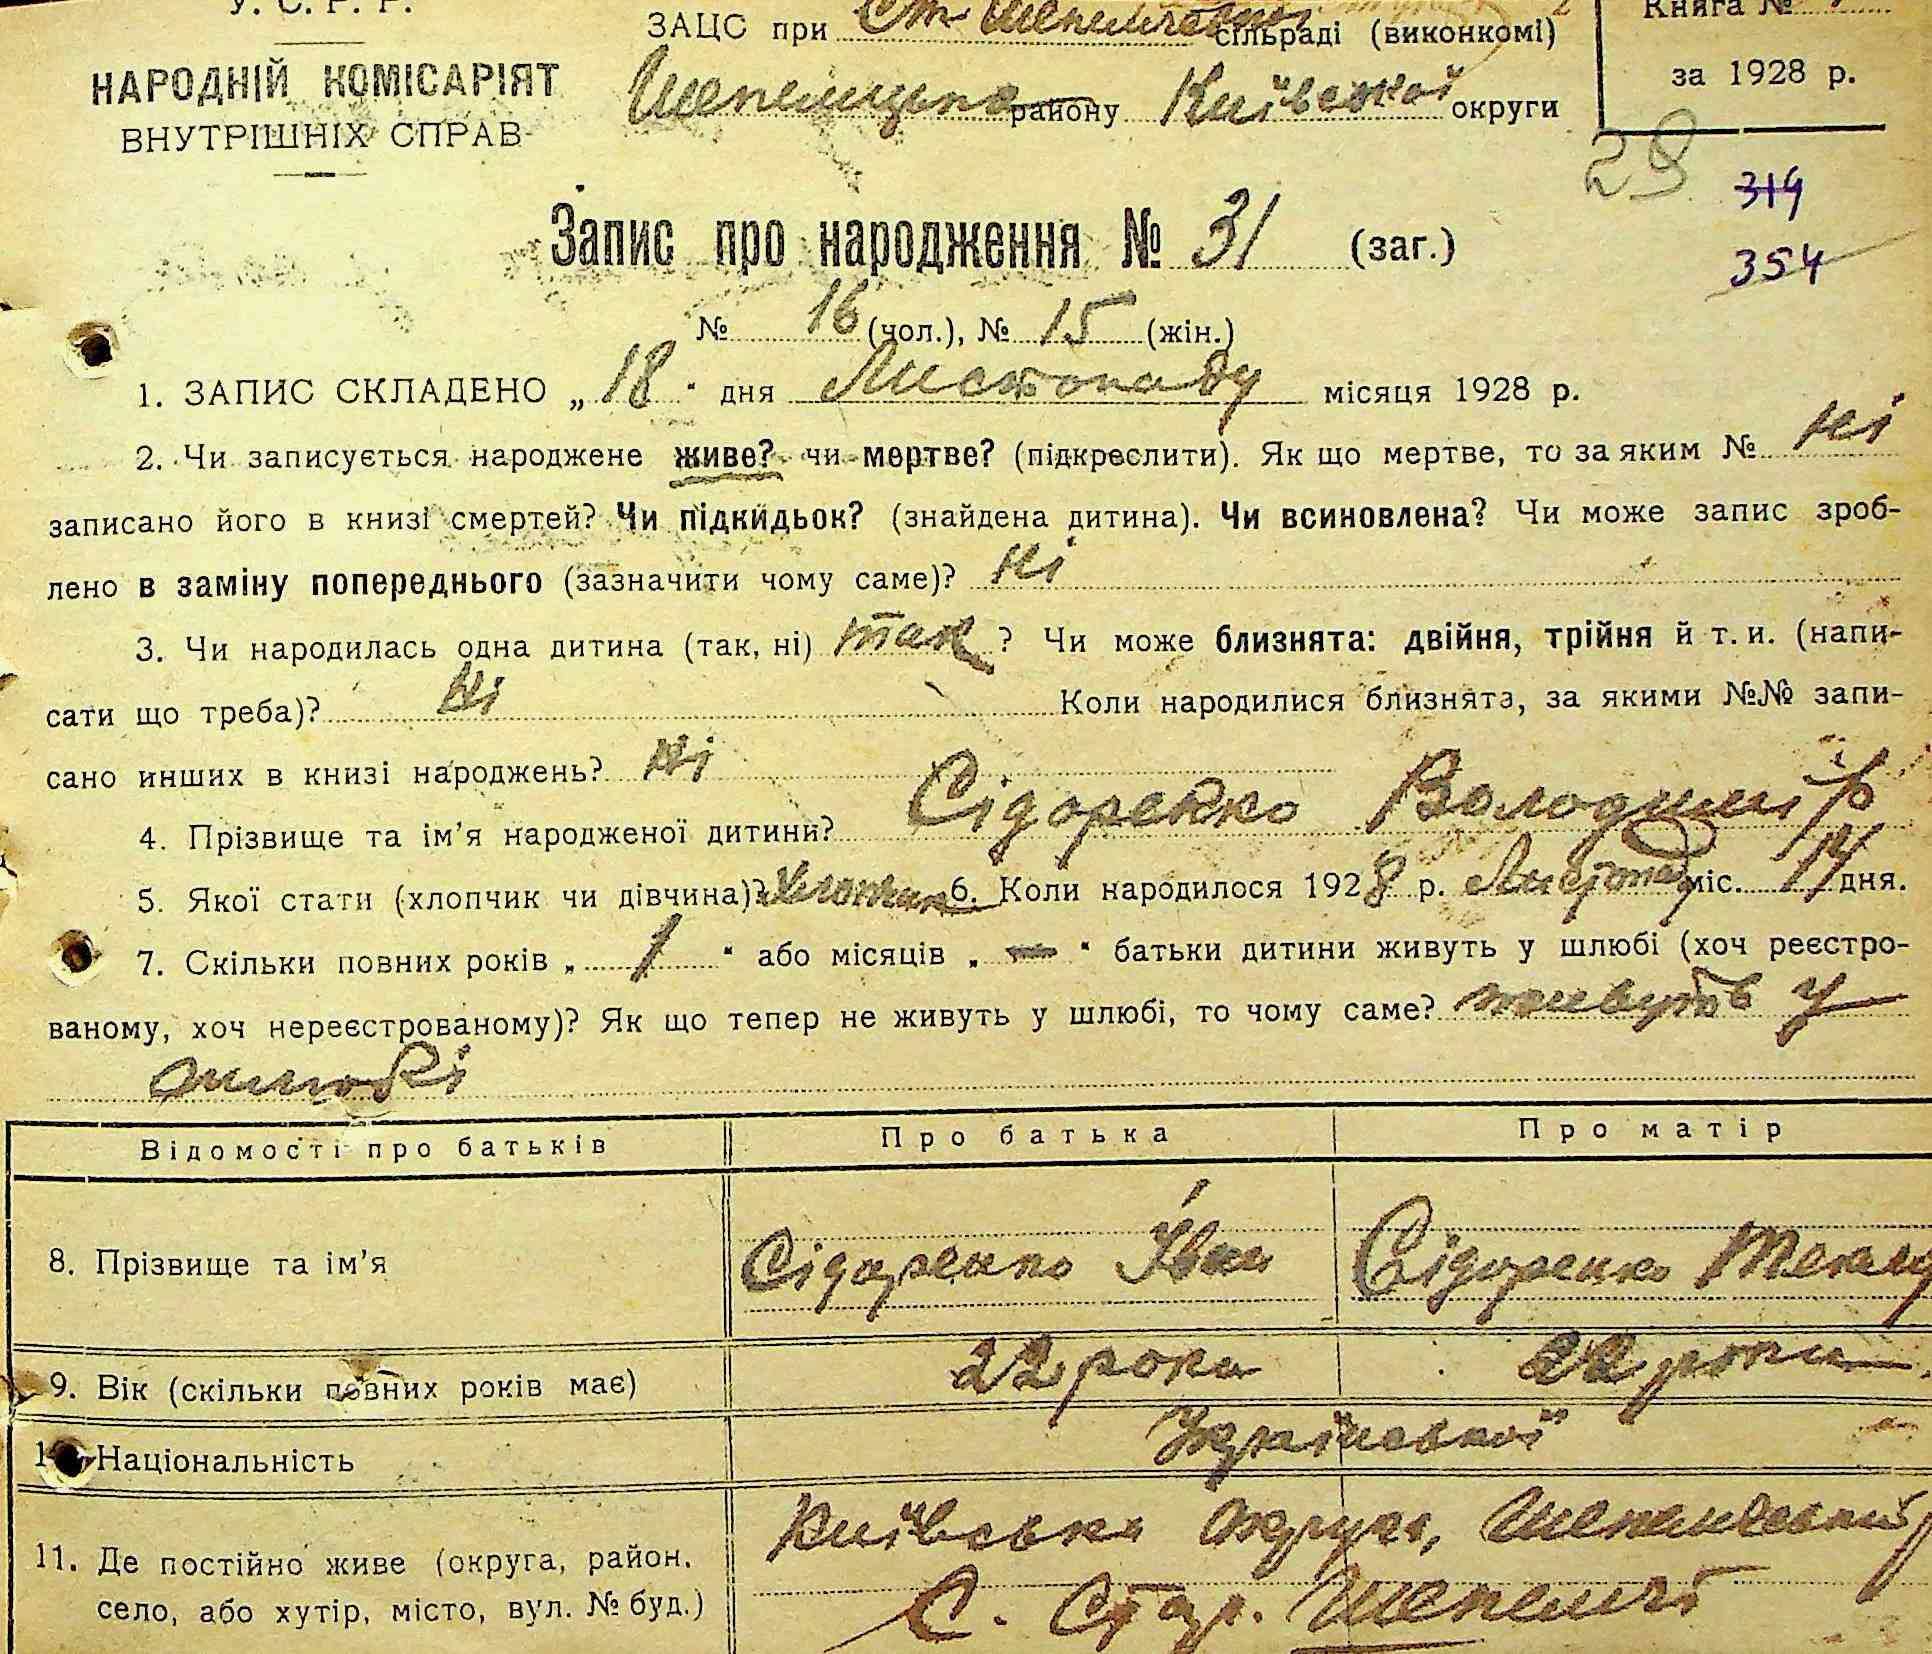 У. С. Р. Р.
НАРОДНІЙ КОМІСАРІЯТ
ВНУТРІШНІХ СПРАВ
ЗАЦС при Ст. Шепелическі сільраді (виконкомі)
району Київської округи
Книга №
за 1928 р.
28
319
354
Запис про народження № 31 (заг.)
№ 16 (чол.), № 15 (жін.)
1. ЗАПИС СКЛАДЕНО „ 18 " дня Листопаду місяця 1928 р.
2. Чи записується народжене живе? чи мертве? (підкреслити). Як що мертве, то за яким № ні
записано його в книзі смертей? Чи підкидьок? (знайдена дитина). Чи всиновлена? Чи може запис зроб-
лено в заміну попереднього (зазначити чому саме)? ні
3. Чи народилась одна дитина (так, ні) так ? Чи може близнята: двійня, трійня й т. и. (напи-
сати що треба)? ні Коли народилися близнята, за якими №№ запи-
сано инших в книзі народжень? ні
4. Прізвище та ім'я народженої дитини? Сідоренко Володимір
5. Якої стати (хлопчик чи дівчина)? Хлопчик 6. Коли народилося 1928 р. Листопад міс. 14 дня.
7. Скільки повних років „ 1 " або місяців „ — " батьки дитини живуть у шлюбі (хоч реєстро-
ваному, хоч нереєстрованому)? Як що тепер не живуть у шлюбі, то чому саме? живуть у
шлюбі
Відомості про батьків Про батька Про матір
8. Прізвище та ім'я Сідоренко Іван Сідоренко Текля
9. Вік (скільки повних років має) 22 роки 22 роки
Національність Української
11. Де постійно живе (округа, район, Київська округа, Шепелический
село, або хутір, місто, вул. № буд.) С. Стар. Шепеличі